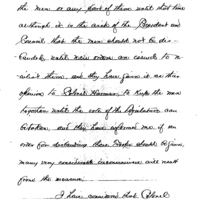 the men or any part of them until that time
as though it is the wish of the President and
Council that the men should not be dis-
banded until new ones are enrolled to re-
enlist them. and they have given it as their
opinion to Colonel to keep the men
together until the vote of the Legislature can
be taken. and they have informed me of an
order for disbanding these troops should be given,
many very considerable inconveniences will result
from the measure
I have considered that Colonel